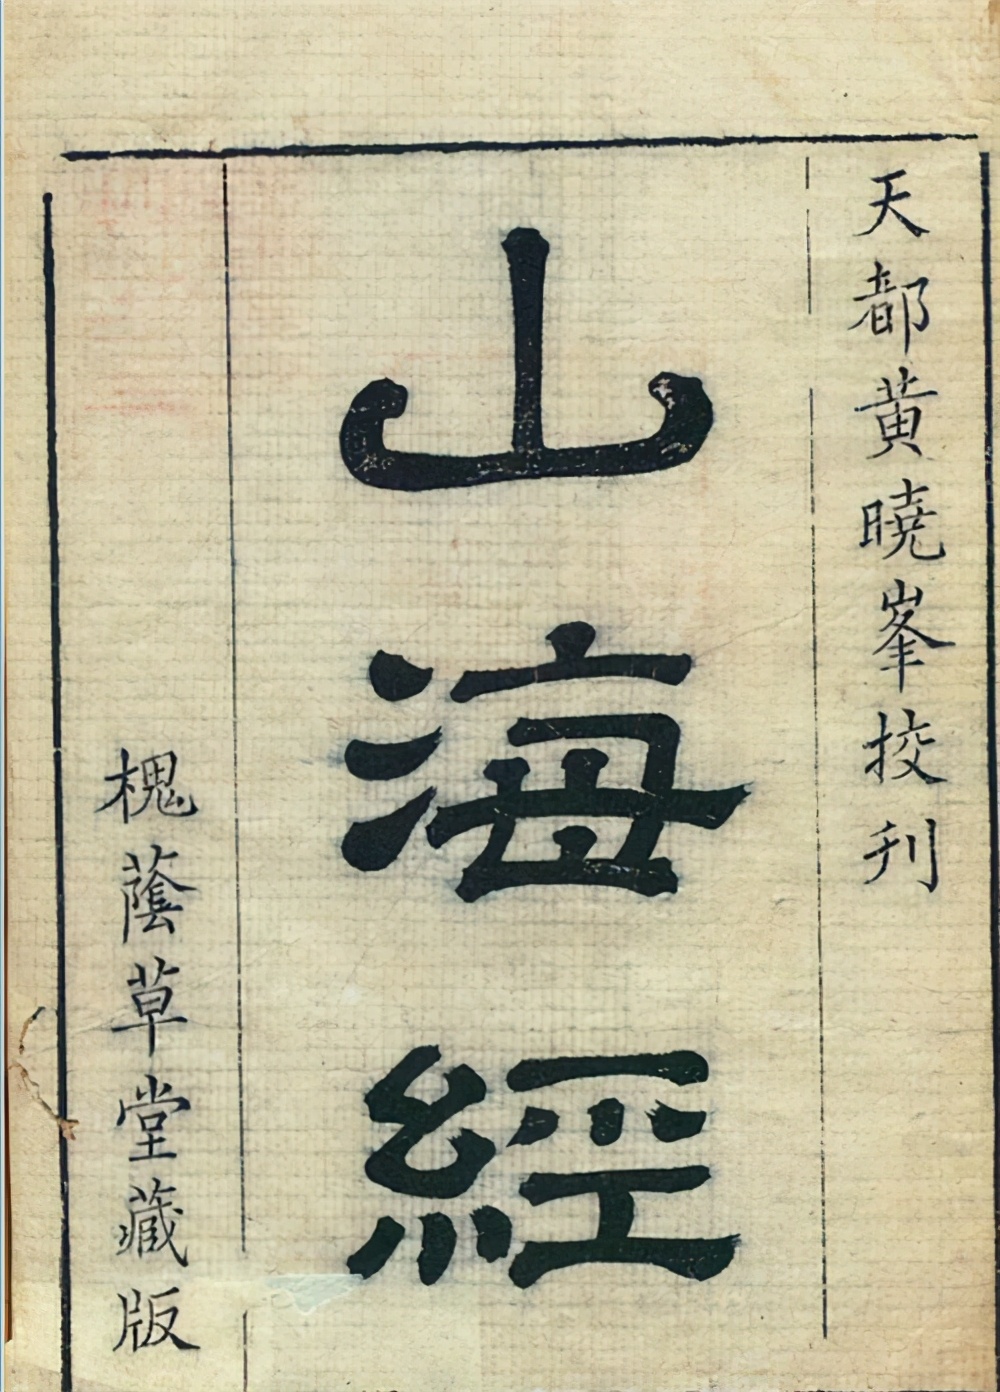 天都黄曉峯挍刋
山海經
槐蔭草堂藏版